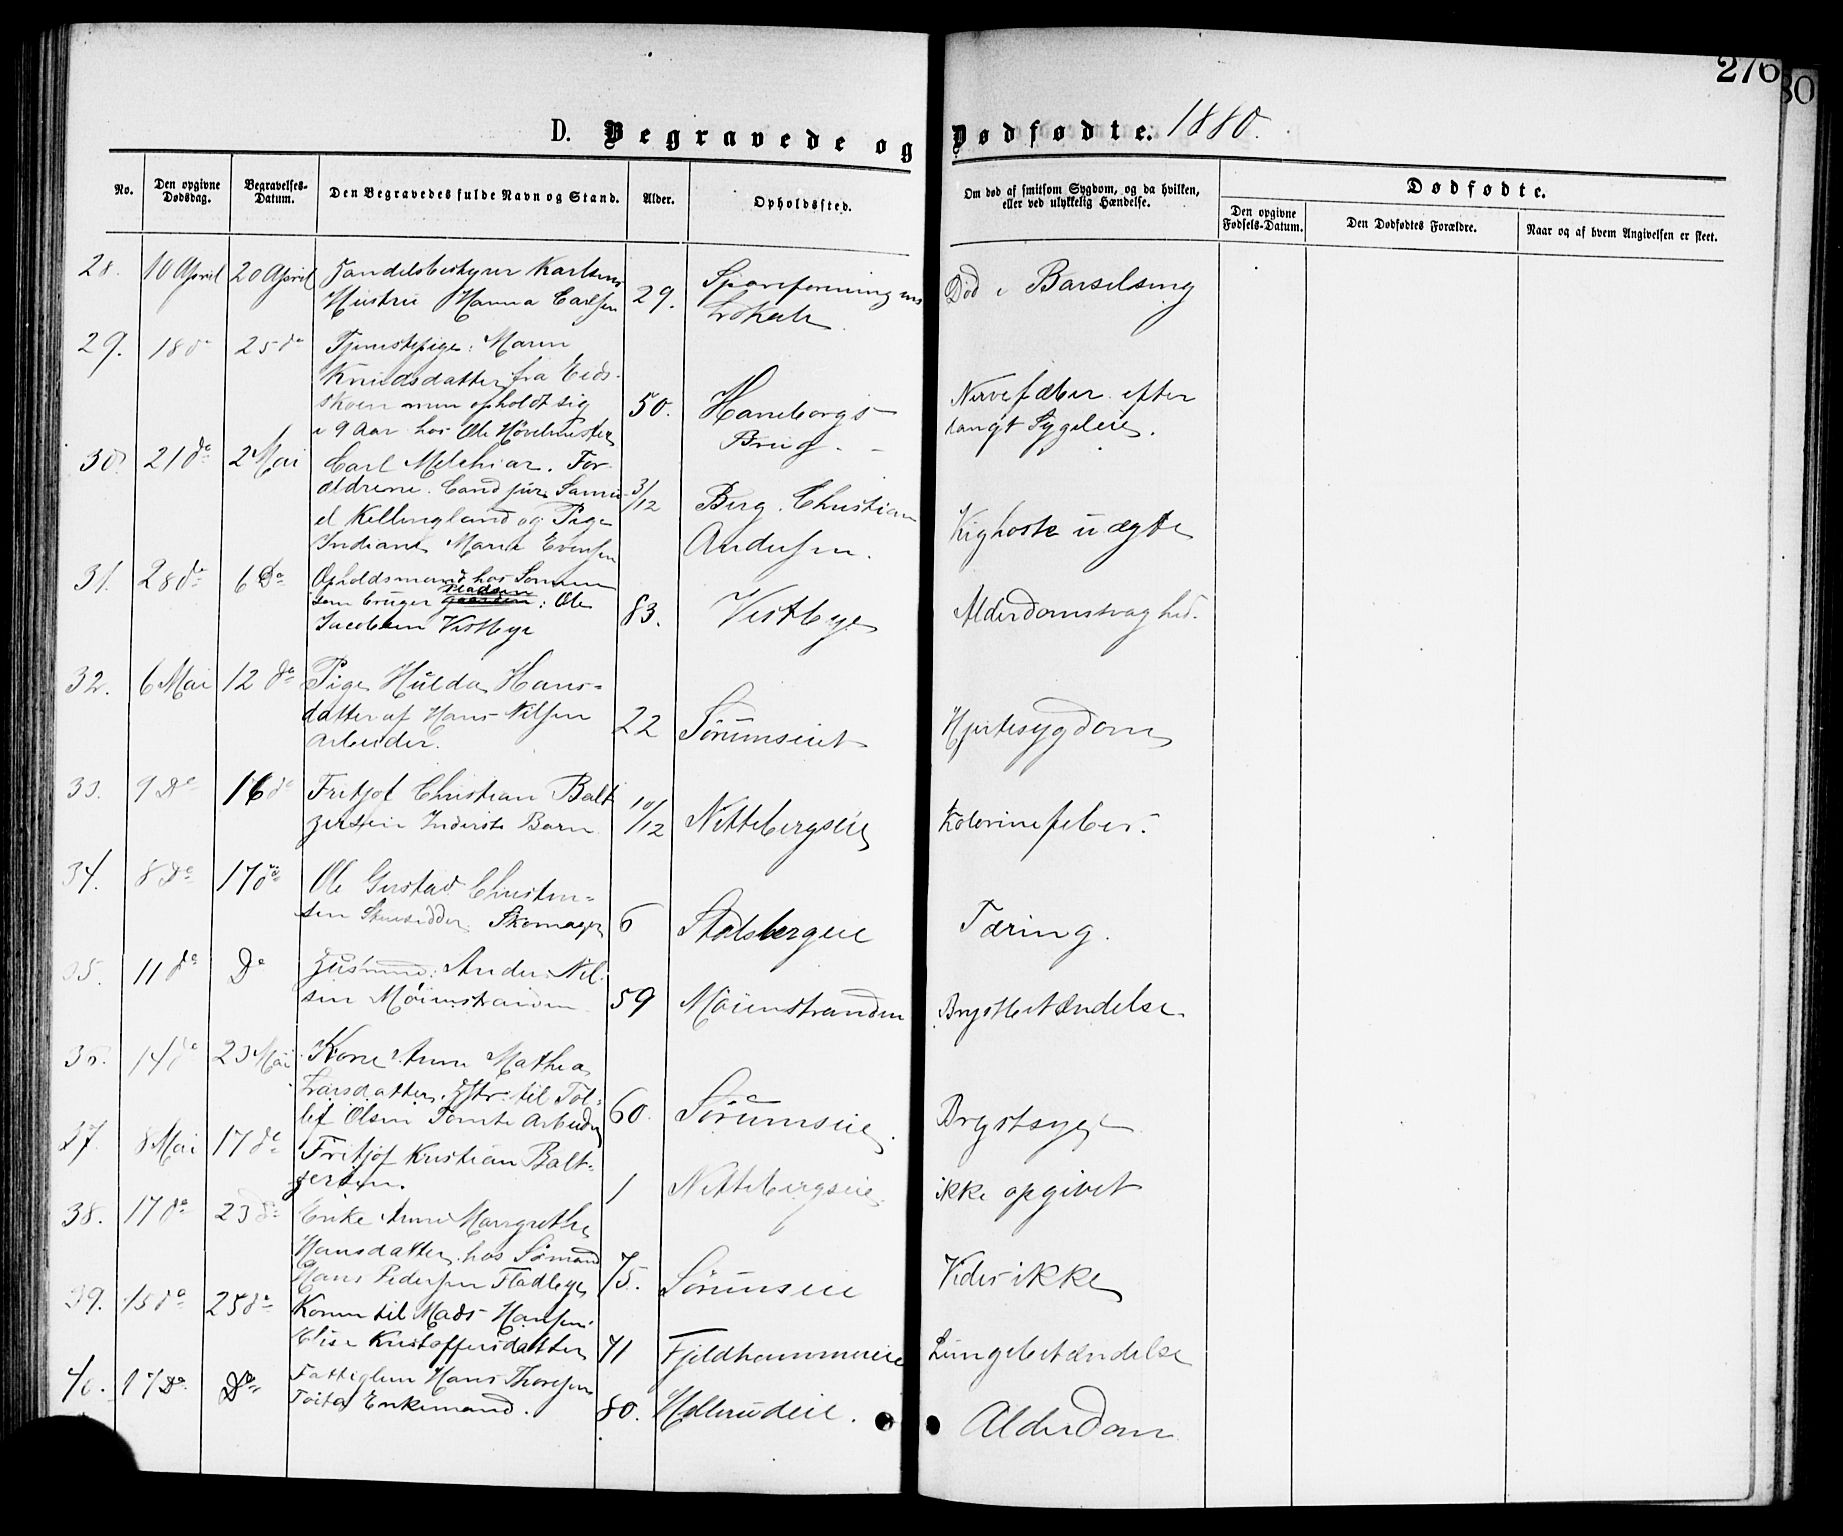 276
80
D. Begravede og Dødfødte. 1880.
No.
Den opgivne Dødsdag.
Begravelses-Datum.
Den Begravedes fulde Navn og Stand.
Alder.
Opholdssted.
Om død af smitsom Sygdom, og da hvilken,
eller ved ulykkelig Hændelse.
Dødfødte.
Den opgivne Fødsels-Datum.
Den Dødfødtes Forældre.
Naar og af hvem Angivelsen er skeet.
28. 10 April 20 April Handelsbestyrer Karlsens
Hustru Hanna Carlsen 29. Spareforeningens Død i Barselseng
Lokale
29. 18 do 25 do Tjenestepige: Maren
Knudsdatter fra Eids-
skoven men opholdt sig 50. Haneborgs Nervefæber efter
i 9 Aar hos Ole Brug. langt Sygeleie.
30. 21 do 2 Mai Carl Melchiar. For-
ældrene. Cand jur. Samu- 3/12 Berg. Christian
el Kellingland og Pige Andersen. Kighoste uægte
Indiane Marie Evensen
31. 28 do 6 Do Opholdsmand hos Sønnen
som bruger Pladsen gaarden: Ole 83. Vestbye Alderdomssvaghed.
Jacobsen Vestbye
32. 6 Mai 12 do Pige Hulda Hans-
datter af Hans Nilsen 22 Sørumseiet Hjertesygdom
Arbeider.
33. 9 Do 16 do Fritjof Christian Balt
zersen Inderste Barn 10/12 Nittebergseie Kolerinefeber.
34. 8 Do 17 do Ole Gustav Christen-
sen Skomager 6 Stalsbergeie Tæring.
35. 11 do Do Husmand: Anders Nil-
sen Møienstranden 59 Møienstranden Brystbetændelse
36. 14 do 23 Mai Kone Anne Mathea
Larsdatter. Hstr. til Tol-
lef Olsen Tomte Arbeider 60. Sørumseie. Brystsyge
37. 8 Mai 17 do Fritjof Kristian Balt-
zersen. 1 Nittebergseie. ikke opgivet
38. 17 do 23 do Enke Anne Margrethe
Hansdatter. hos Sømand
Hans Pedersen Fladbye 75. Sørumseie Vides ikke
39. 15 do 25 do Konen til Mads Hansen
Elise Kristoffersdatter 71 Fjeldhammereie Lungebetændelse
40. 17 Do. Do Fattiglem Hans Thoresen
Toita Enkemand. 80. Hellerudeie. Alderdom